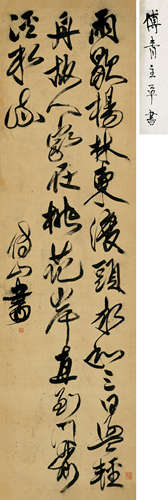 傅青主草書
雨歇楊林東渡頭永和三日盪輕
舟故人家在桃花岸直到門前
溪水流
傅山書